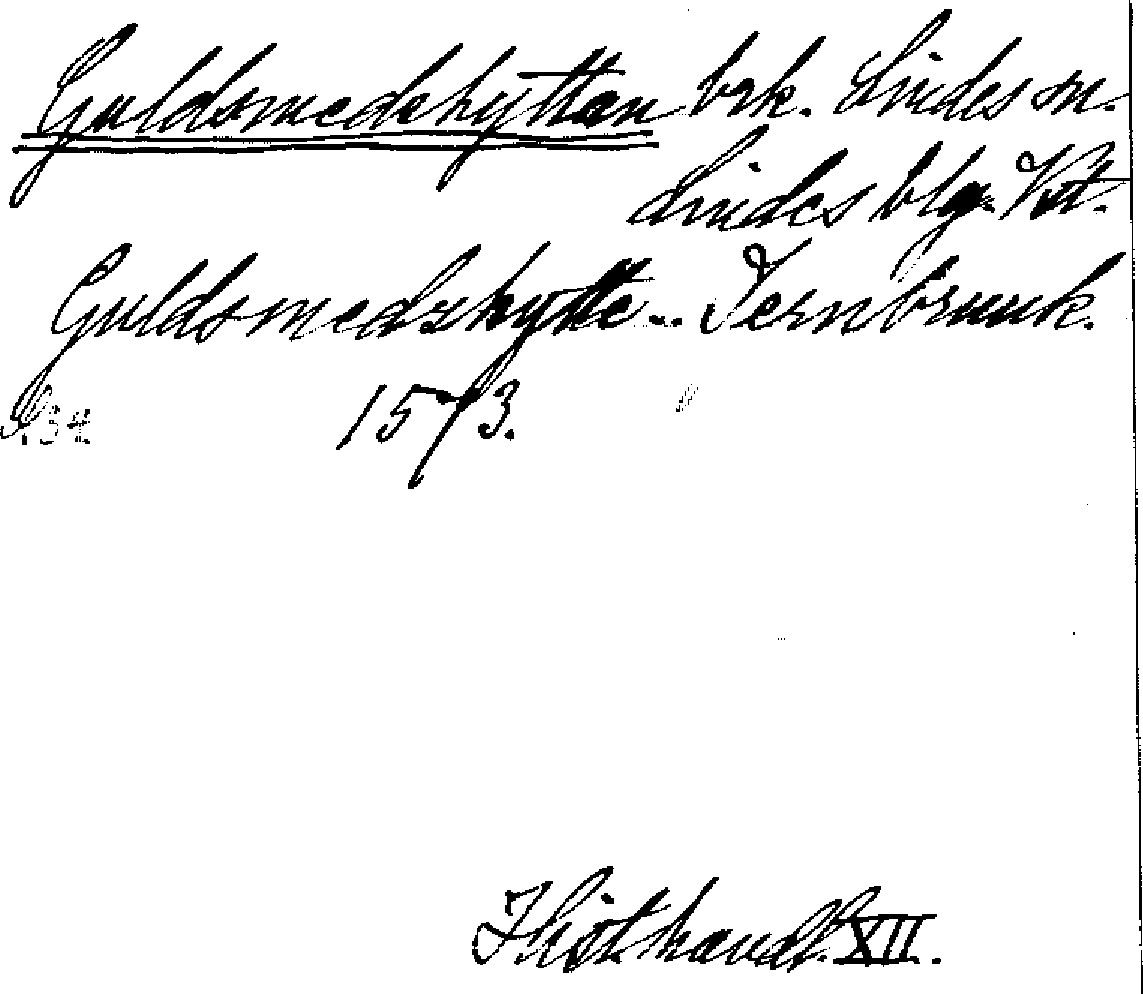 Guldsmedshyttan brk. Lindes sn.
Lindes blg. Vstm.
Guldsmedzhytte - Jernbruuk.
S. 34 1573.
Hist. handl. XII.